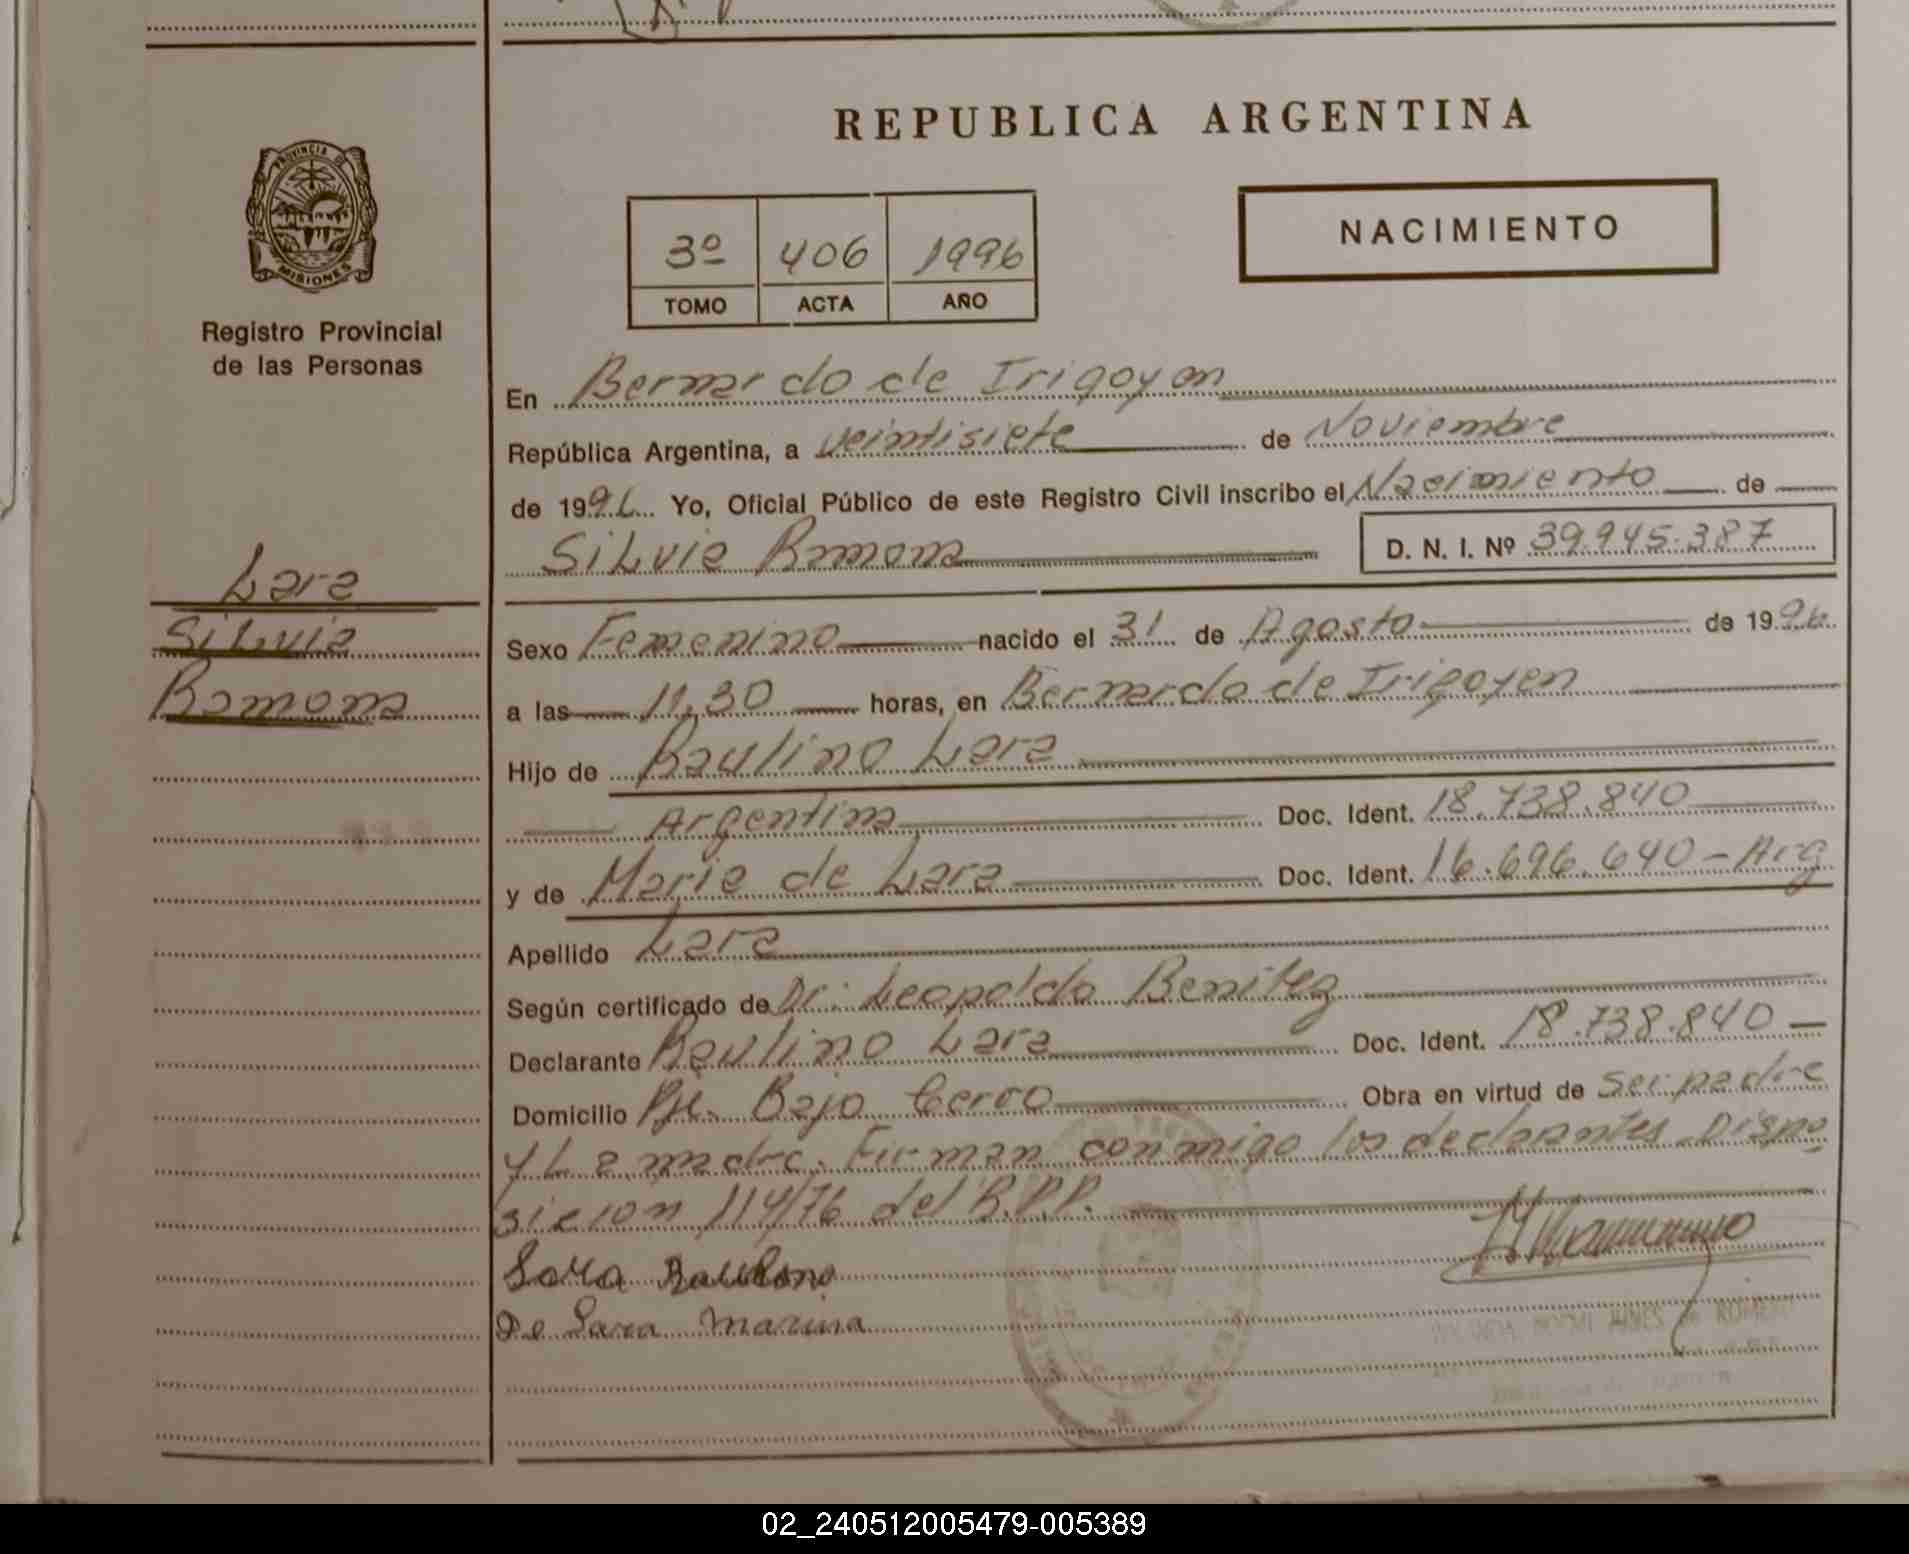 REPUBLICA ARGENTINA
PROVINCIA DE
MISIONES
Registro Provincial
de las Personas
3º 406 1996
TOMO ACTA AÑO
NACIMIENTO
En Bernardo de Irigoyen
República Argentina, a veintisiete de Noviembre
de 1996 Yo, Oficial Público de este Registro Civil inscribo el Nacimiento de
Silvia Ramona D. N. I. Nº 39.945.387
Lara
Silvia
Ramona
Sexo Femenino nacido el 31 de Agosto de 1996
a las 11,30 horas, en Bernardo de Irigoyen
Hijo de Raulino Lara
Argentina Doc. Ident. 18.738.840
y de Maria de Lara Doc. Ident. 16.696.640 - Arg
Apellido Lara
Según certificado de Dr. Leopoldo Benitez
Declarante Raulino Lara Doc. Ident. 18.738.840
Domicilio Pje. Bajo Cerro Obra en virtud de ser padre
y La madre. Firman conmigo los declarantes Dispo
sicion 114/76 del R.P.P.
Lara Raulino
De Lara Marina
02_240512005479-005389